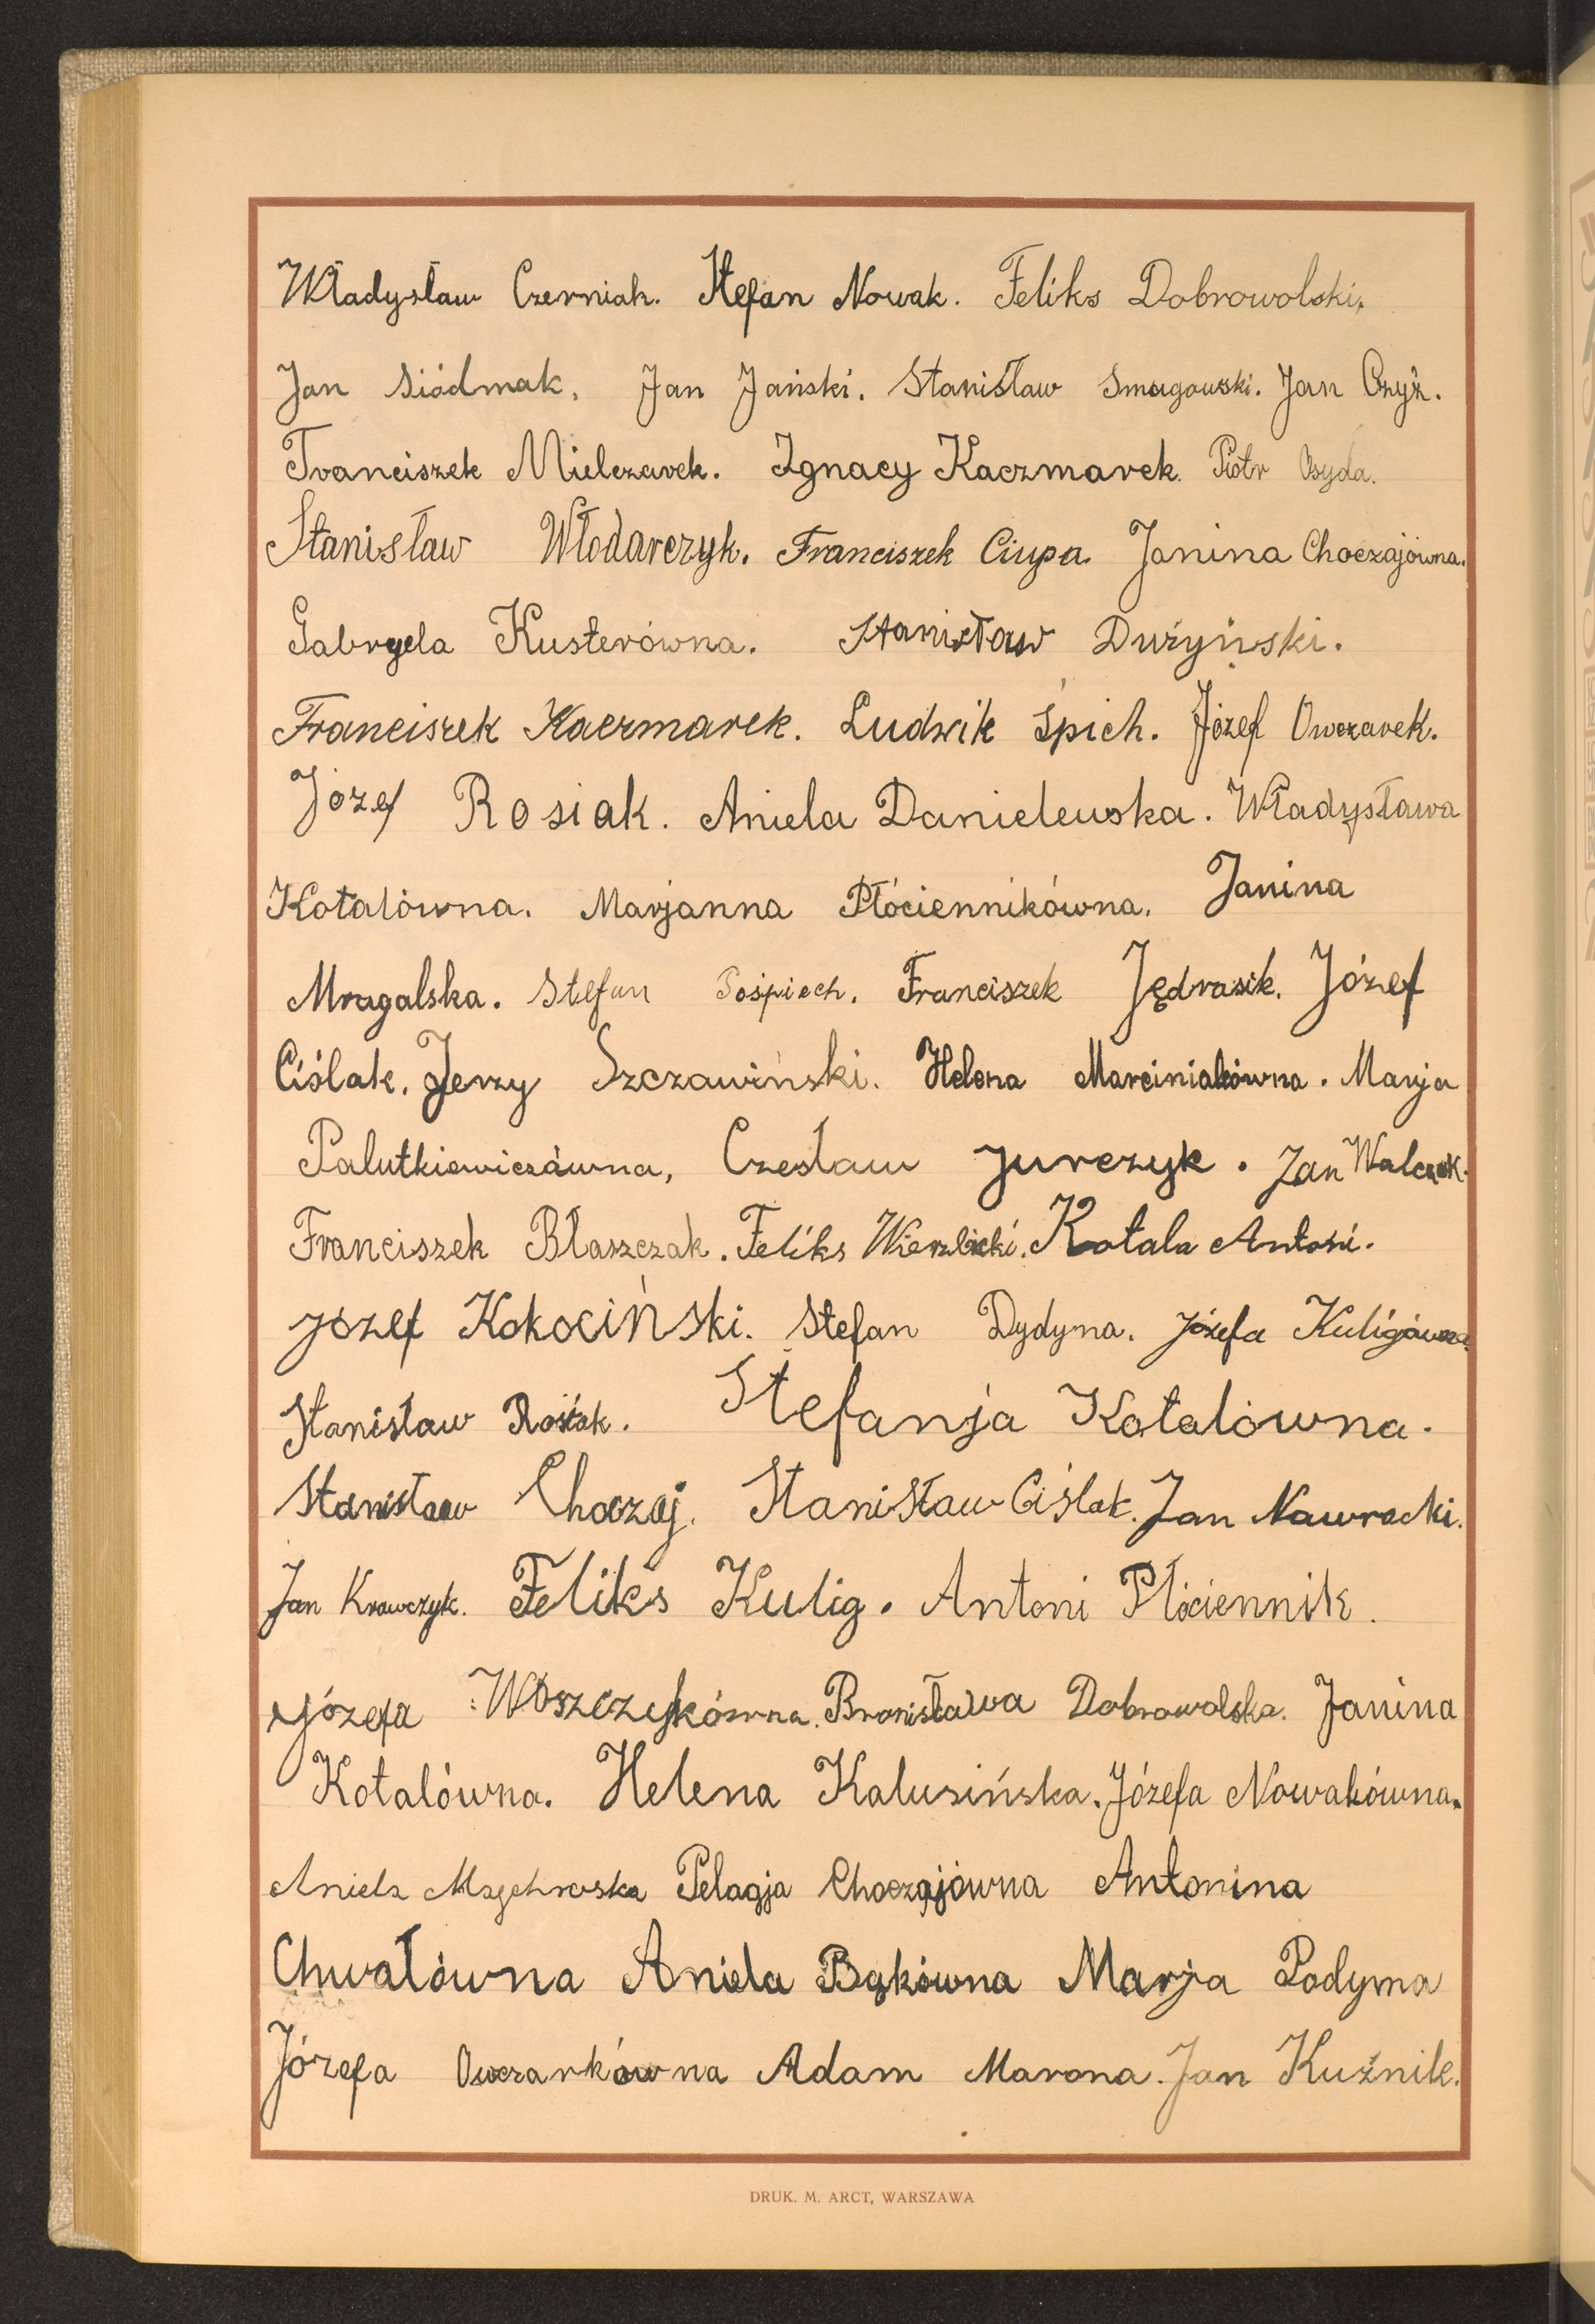 Władysław Czerniak. Stefan Nowak. Feliks Dobrowolski.
Jan Siódmak. Jan Jański. Stanisław Smugowski. Jan Czyż.
Franciszek Mielczarek. Ignacy Kaczmarek. Piotr Osyda.
Stanisław Włodarczyk. Franciszek Ciupa. Janina Choczajówna.
Gabryela Kusterówna. Stanisław Dużyński.
Franciszek Kaczmarek. Ludwik Śpich. Józef Owczarek.
Józef Rosiak. Aniela Danielewska. Władysława
Kotalówna. Marjanna Płóciennikówna. Janina
Mragalska. Stefan Pośpiech. Franciszek Jędrasik. Józef
Ciślak. Jerzy Szczawiński. Helena Marciniakówna. Marja
Palutkiewiczówna, Czesław Jurczyk. Jan Walczak.
Franciszek Błaszczak. Feliks Wierzbicki. Kotala Antoni.
Józef Kokociński. Stefan Dydyna. Józefa Kuligówna.
Stanisław Rosiak. Stefanja Kotalówna.
Stanisław Choczaj. Stanisław Ciślak. Jan Nawrocki.
Jan Krawczyk. Feliks Kulig. Antoni Płóciennik.
Józefa Woszczykówna. Bronisława Dobrowolska. Janina
Kotalówna. Helena Kalusińska. Józefa Nowakówna.
Aniela Majchrowska Pelagja Choczajówna Antonina
Chwałówna Aniela Bąkówna Marja Podyma
Józefa Owczarkówna Adam Marona. Jan Kuźnik.
DRUK. M. ARCT, WARSZAWA